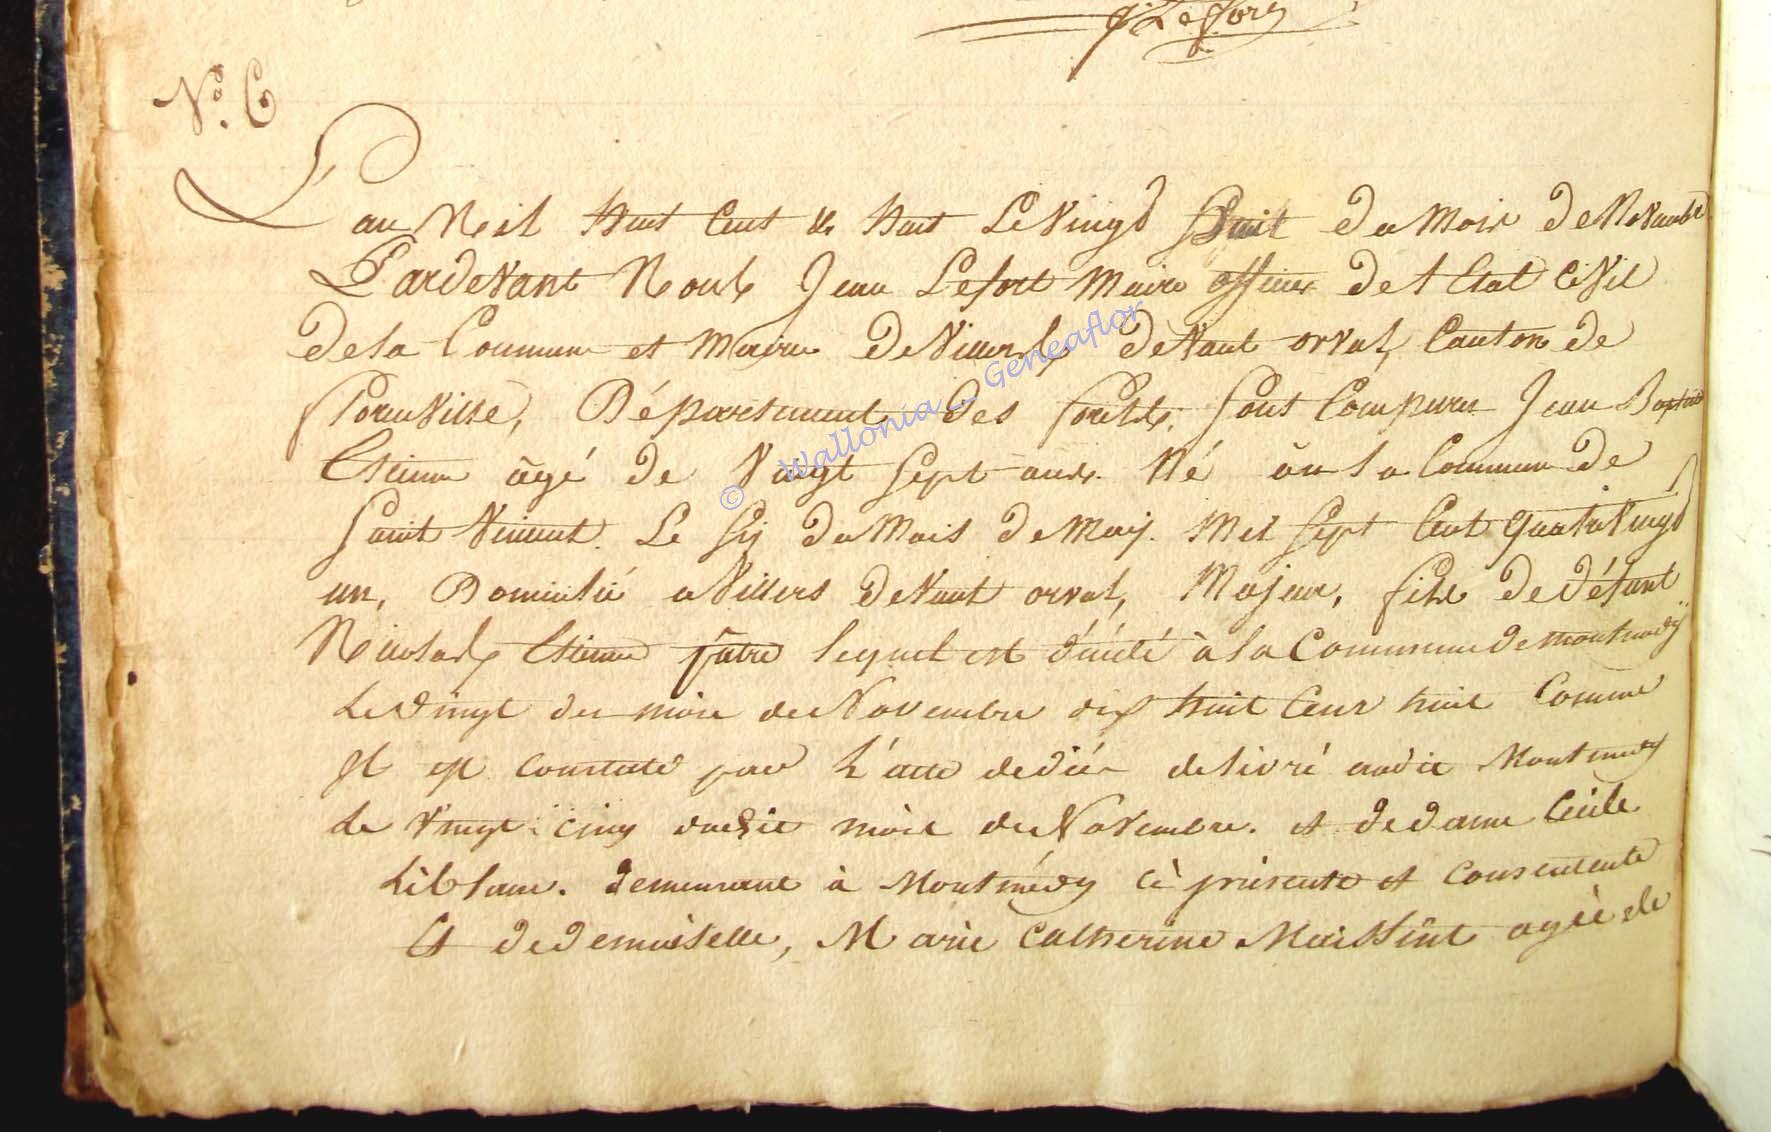 J: Lefort
N.° 6
L'an Mil huit Cent & huit Le Vingt huit du Mois de Novembre
Pardevant Nous Jean Lefort Maire officier de l Etat Civil
de la Commune et Mairie de Villers devant orval, Canton de
florenville, Département des forêts, sont Comparu Jean Baptiste
Etienne âgé de Vingt sept ans. Né en la Commune de
saint Vincent. Le six du Mois de May. Mil sept Cent Quatre Vingt
un, Domicilié a Villers devant orval, Majeur, fils de défunt
Nicolas Etienne lequel est décédé à la Commune de montmedÿ
le vingt du mois de Novembre dix huit Cent huit Comme
Il est constaté par L'acte de délivré audit Montmedy
le vingt cinq dudit mois de Novembre. et de dame Cécile
demeurant à Montmédy ci présente et Consentente
Et de demoiselle, Marie Catherine agée de
© Wallonia - Geneaflor